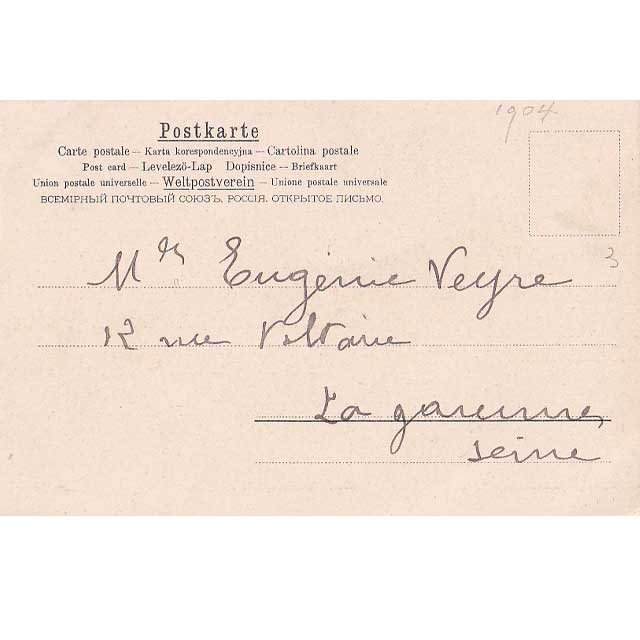 1904
Postkarte
Carte postale – Karta korespondencyjna – Cartolina postale
Post card – Levelező-Lap Dopisnice – Briefkaart
Union postale universelle – Weltpostverein – Unione postale universale
ВСЕМІРНЫЙ ПОЧТОВЫЙ СОЮЗЪ. РОССІЯ. ОТКРЫТОЕ ПИСЬМО.
3
Eugénie Veyre
12 rue Voltaire
La garenne,
Seine